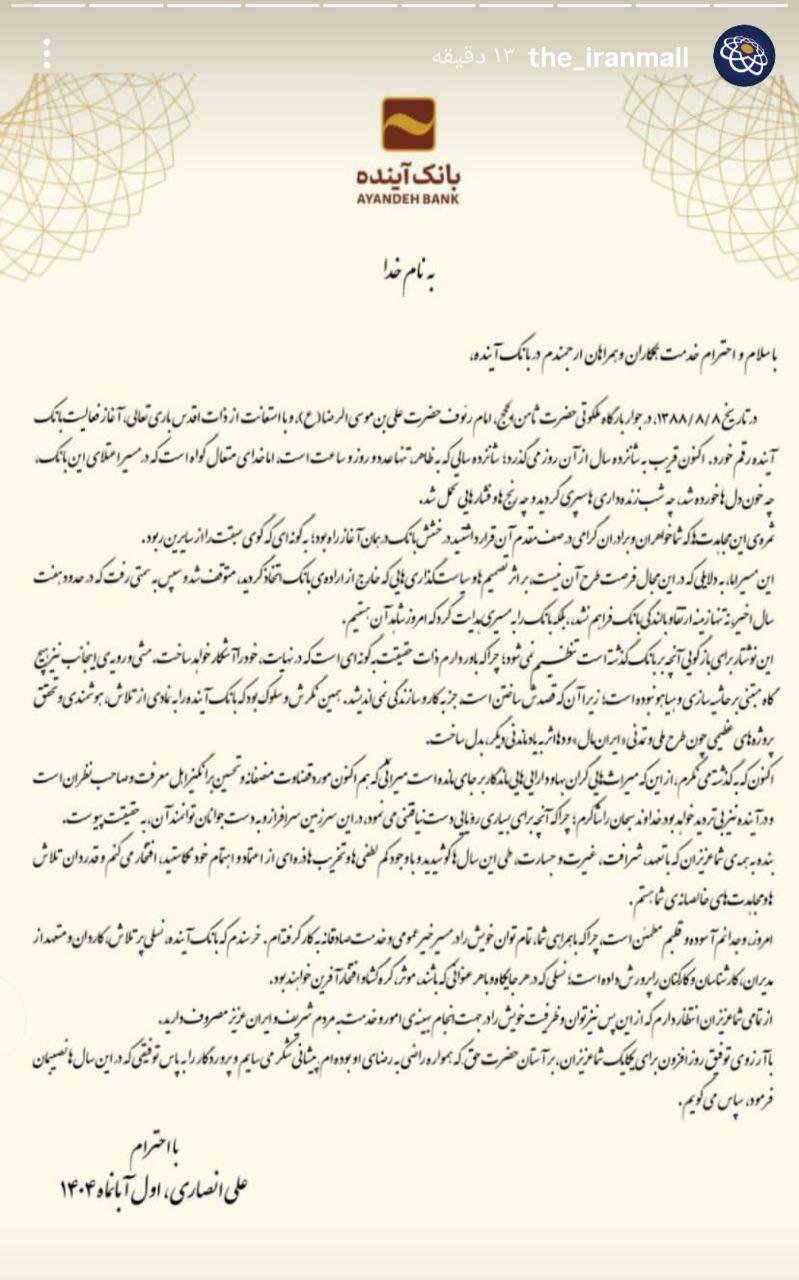 the_iranmall ۱۳ دقیقه
بانک آینده
AYANDEH BANK
به نام خدا
با سلام و احترام خدمت همکاران و همراهان ارجمندم در بانک آینده،
در تاریخ ۱۳۸۸/۸/۸، در جوار بارگاه ملکوتی حضرت ثامن‌الحجج، امام رئوف حضرت علی‌بن‌موسی‌الرضا(ع)، و با استعانت از ذات اقدس باری‌تعالی، آغاز فعالیت بانک
آینده رقم خورد. اکنون قریب به شانزده سال از آن روز می‌گذرد؛ شانزده سالی که به ظاهر، تنها عدد و روز و ساعت است، اما خدای متعال گواه است که در مسیر اعتلای این بانک،
چه خون دل‌ها خورده شد، چه شب‌زنده‌داری‌ها سپری گردید و چه رنج‌ها و فشارهایی تحمل شد.
ثمره‌ی این مجاهدت‌ها که شما خواهران و برادران گرامی در صف مقدم آن قرار داشتید، درخشش بانک در همان آغاز راه بود؛ به گونه‌ای که گوی سبقت را از سایرین ربود.
این مسیر اما، به دلایلی که در این مجال فرصت طرح آن نیست، بر اثر تصمیم‌ها و سیاست‌گذاری‌هایی که خارج از اراده‌ی بانک اتخاذ گردید، متوقف شد و سپس به سمتی رفت که در حدود هفت
سال اخیر، نه تنها زمینه ارتقا و بالندگی بانک فراهم نشد، بلکه بانک را به مسیری هدایت کرد که امروز شاهد آن هستیم.
این نوشتار برای بازگویی آنچه بر بانک گذشته است تنظیم نمی‌شود؛ چراکه باور دارم ذات حقیقت به گونه‌ای است که در نهایت، خود را آشکار خواهد ساخت. مشی و رویه‌ی اینجانب نیز هیچ
گاه مبتنی بر حاشیه‌سازی و هیاهو نبوده است؛ زیرا آن که قصدش ساختن است، جز به کار و سازندگی نمی‌اندیشد. همین نگرش و سلوک بود که بانک آینده را به نمادی از تلاش، هوشمندی و تحقق
پروژه‌های عظیمی چون طرح ملی و تمدنی «ایران‌مال» و ده‌ها اثر به یادماندنی دیگر، بدل ساخت.
اکنون که به گذشته می‌نگرم، از این که میراث‌هایی گران‌بها و دارایی‌هایی ماندگار بر جای مانده است میراثی که هم اکنون مورد قضاوت منصفانه و تحسین‌برانگیز اهل معرفت و صاحب نظران است
و در آینده نیز بی‌تردید خواهد بود خداوند سبحان را شاکرم؛ چراکه آنچه برای بسیاری رویایی دست‌نیافتنی می‌نمود، در این سرزمین سرافراز و به دست جوانان توانمند آن، به حقیقت پیوست.
بنده به همه‌ی شما عزیزان که با تعهد، شرافت، غیرت و جسارت، طی این سال‌ها کوشیدید و با وجود کم لطفی‌ها و تخریب‌ها ذره‌ای از اعتماد و اهتمام خود نکاستید، افتخار می‌کنم و قدردان تلاش
ها و مجاهدت‌های خالصانه‌ی شما هستم.
امروز، وجدانم آسوده و قلبم مطمئن است، چراکه با همراهی شما، تمام توان خویش را در مسیر خیر عمومی و خدمت صادقانه به کار گرفته‌ام. خرسندم که بانک آینده، نسلی پرتلاش، کاردان و متعهد از
مدیران، کارشناسان و کارکنان را پرورش داده است؛ نسلی که در هر جایگاه و با هر عنوانی که باشند، موثر، گره‌گشا و افتخارآفرین خواهند بود.
از تمامی شما عزیزان انتظار دارم که از این پس نیز توان و ظرفیت خویش را در جهت انجام بهینه‌ی امور و خدمت به مردم شریف و ایران عزیز مصروف دارید.
با آرزوی توفیق روزافزون برای یکایک شما عزیزان، بر آستان حضرت حق که همواره راضی به رضای او بوده‌ام پیشانی شکر می‌سایم و پروردگار را به پاس توفیقی که در این سال‌ها نصیبمان
فرمود، سپاس می‌گویم.
با احترام
علی انصاری، اول آبانماه ۱۴۰۴